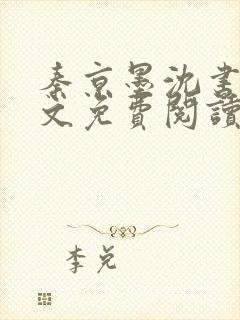 秦京墨沈書
文免費閱讀
李兌